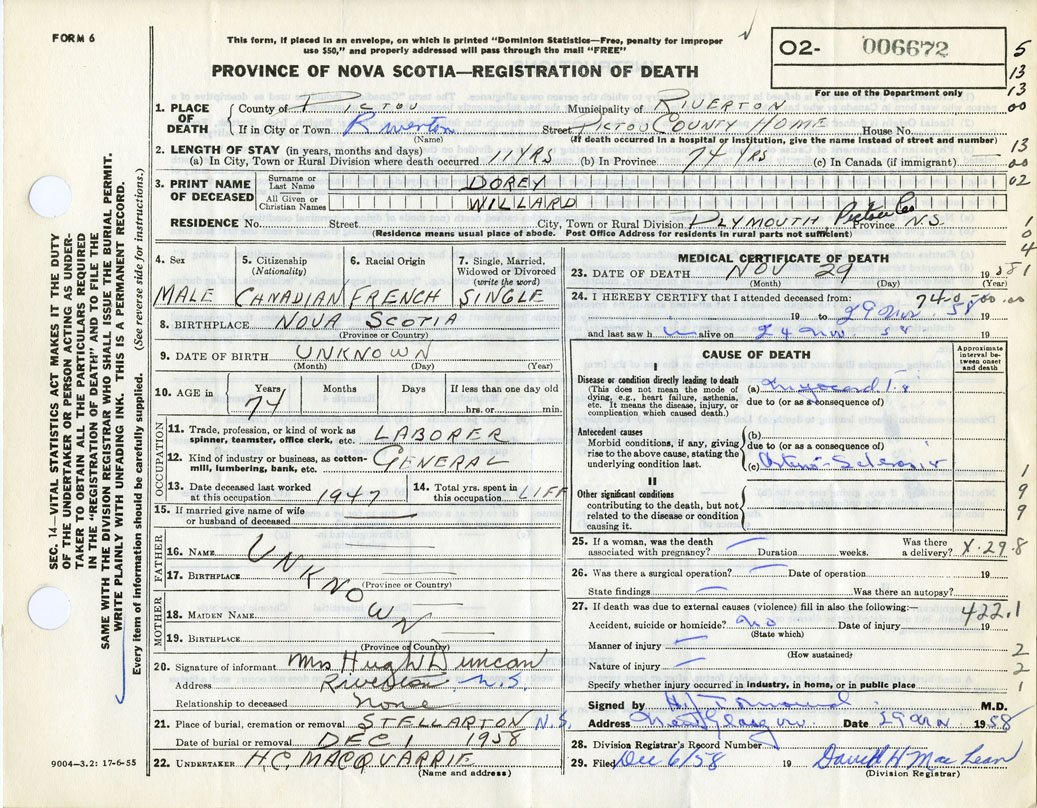 FORM 6
This form, if placed in an envelope, on which is printed "Dominion Statistics—Free, penalty for improper
use $50," and properly addressed will pass through the mail "FREE"
PROVINCE OF NOVA SCOTIA—REGISTRATION OF DEATH
02- 006672
For use of the Department only
5
13
13
00
13
00
02
1
0
4
1. PLACE OF DEATH
County of PICTOU Municipality of RIVERTON
If in City or Town Riverton Street PICTOU COUNTY HOME House No.
(Name) (If death occurred in a hospital or institution, give the name instead of street and number)
2. LENGTH OF STAY (in years, months and days)
(a) In City, Town or Rural Division where death occurred 11 YRS (b) In Province 74 YRS (c) In Canada (if immigrant)
3. PRINT NAME OF DECEASED
Surname or Last Name DOREY
All Given or Christian Names WILLARD
RESIDENCE No. Street City, Town or Rural Division PLYMOUTH Pictou Co Province N.S.
(Residence means usual place of abode. Post Office Address for residents in rural parts not sufficient)
4. Sex MALE
5. Citizenship (Nationality) CANADIAN
6. Racial Origin FRENCH
7. Single, Married, Widowed or Divorced (write the word) SINGLE
8. BIRTHPLACE NOVA SCOTIA
(Province or Country)
9. DATE OF BIRTH UNKNOWN
(Month) (Day) (Year)
10. AGE in Years Months Days If less than one day old
74 hrs. or min.
OCCUPATION
11. Trade, profession or kind of work as spinner, teamster, office clerk, etc. LABORER
12. Kind of industry or business, as cotton-mill, lumbering, bank, etc. GENERAL
13. Date deceased last worked at this occupation 1947
14. Total yrs. spent in this occupation LIFE
15. If married give name of wife or husband of deceased
FATHER
16. NAME
17. BIRTHPLACE
(Province or Country)
UNKNOWN
MOTHER
18. MAIDEN NAME
19. BIRTHPLACE
(Province or Country)
20. Signature of informant Mrs Hugh Duncan
Address Riverton, N.S.
Relationship to deceased none
21. Place of burial, cremation or removal STELLARTON N.S.
Date of burial or removal DEC 1 1958
22. UNDERTAKER H.C. MACQUARRIE
(Name and address)
MEDICAL CERTIFICATE OF DEATH
23. DATE OF DEATH NOV 29 1958
(Month) (Day) (Year)
1
24. I HEREBY CERTIFY that I attended deceased from: 74-0-00.00
19 to 29 Nov. 58 19
and last saw h im alive on 24 Nov 58 19
CAUSE OF DEATH
Approximate interval between onset and death
I
Disease or condition directly leading to death
(This does not mean the mode of dying, e.g., heart failure, asthenia, etc. It means the disease, injury, or complication which caused death.)
(a)
due to (or as a consequence of)
Antecedent causes
Morbid conditions, if any, giving rise to the above cause, stating the underlying condition last.
(b)
due to (or as a consequence of)
(c)
II
Other significant conditions
contributing to the death, but not related to the disease or condition causing it.
1
9
9
25. If a woman, was the death associated with pregnancy? Duration weeks. Was there a delivery? X.29.8
26. Was there a surgical operation? Date of operation 19
State findings Was there an autopsy?
27. If death was due to external causes (violence) fill in also the following:— 422.1
Accident, suicide or homicide? no Date of injury 19
(State which)
Manner of injury 2
(How sustained)
Nature of injury 2
Specify whether injury occurred in industry, in home, or in public place 1
Signed by M.D.
Address New Glasgow Date 29 Nov 1958
28. Division Registrar's Record Number
29. Filed Dec 6/58 19 David H MacLean
(Division Registrar)
SEC. 14—VITAL STATISTICS ACT MAKES IT THE DUTY
OF THE UNDERTAKER OR PERSON ACTING AS UNDER-
TAKER TO OBTAIN ALL THE PARTICULARS REQUIRED
IN THE "REGISTRATION OF DEATH" AND TO FILE THE
SAME WITH THE DIVISION REGISTRAR WHO SHALL ISSUE THE BURIAL PERMIT.
WRITE PLAINLY WITH UNFADING INK. THIS IS A PERMANENT RECORD.
Every item of information should be carefully supplied. (See reverse side for instructions.)
9004—3.2: 17-6-55